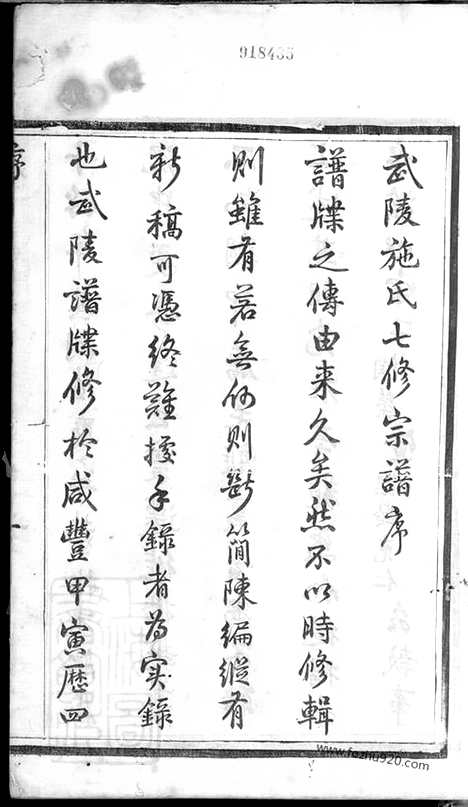 918433
武陵施氏七修宗譜序
譜牒之傳由来久矣然不以時修輯
則雖有若無何則斷簡陳編縱有
新稿可憑終難據手錄者為實錄
也武陵譜牒修於咸豐甲寅歷四
序
www.fozhu920.com